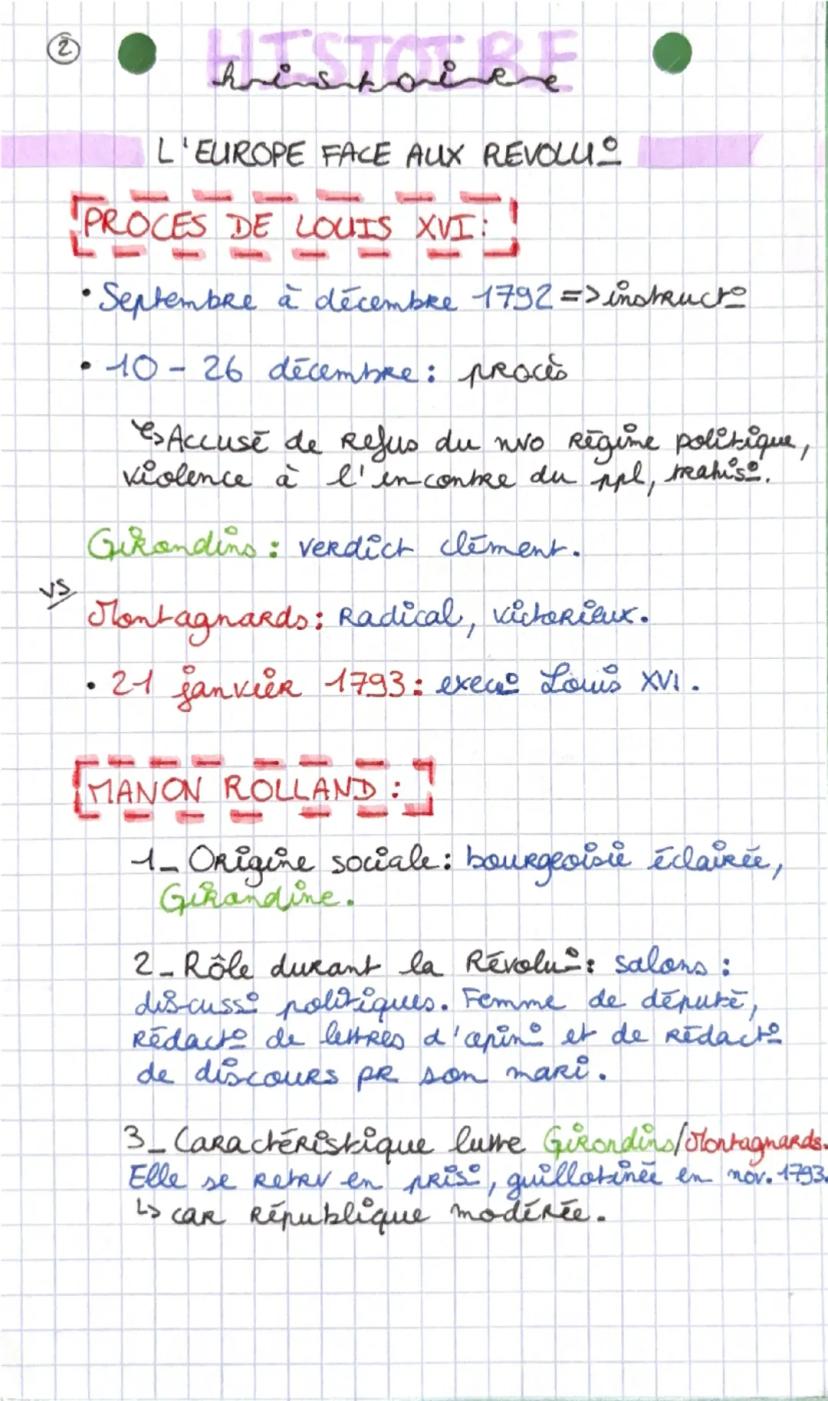 ②
HISTOIRE
histoire
L'EUROPE FACE AUX REVOLU°
PROCES DE LOUIS XVI:
• Septembre à décembre 1792 => instruct°
• 10 - 26 décembre : procès
↳ Accusé de Refus du nvo Régime politique,
violence à l'encontre du ppl, trahis°.
Girondins : verdict clément.
VS
Montagnards : Radical, victorieux.
• 21 janvier 1793 : execu° Louis XVI.
MANON ROLLAND :
1_ Origine sociale : bourgeoisie éclairée,
Girondine.
2_ Rôle durant la Révolu° : salons :
discuss° politiques. Femme de député,
Rédact° de lettres d'opin° et de rédact°
de discours pr son mari.
3_ Caractéristique lutte Girondins/Montagnards.
Elle se retrv en pris°, guillotinée en nov. 1793.
↳ car République modérée.